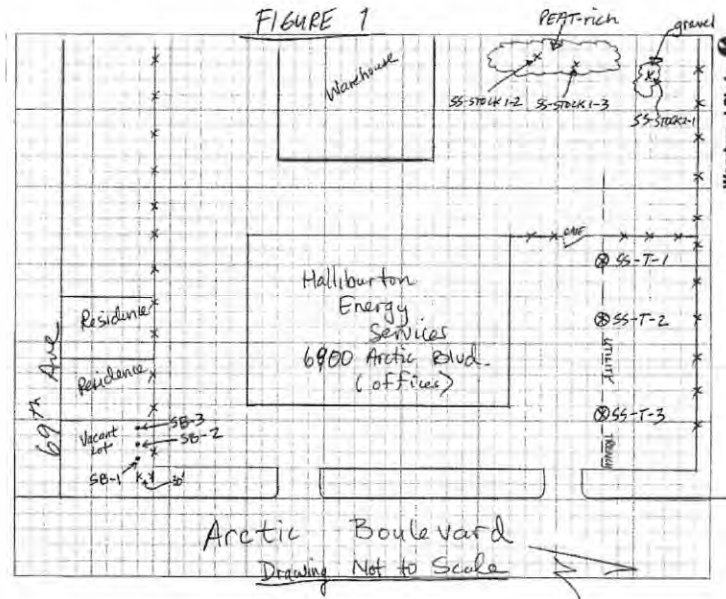 FIGURE 1
PEAT-rich
gravel
Warehouse
SS-STOCK1-2
SS-STOCK1-3
SS-STOCK2-1
GATE
SS-T-1
Halliburton
Energy
Services
6900 Arctic Blvd.
(offices)
SS-T-2
UTILITY
SS-T-3
TRENCH
69th Ave
Residence
Residence
Vacant
Lot
SB-3
SB-2
SB-1
Arctic Boulevard
Drawing Not to Scale